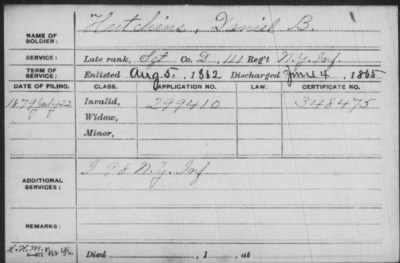 NAME OF SOLDIER: Hutchins, Daniel B.
SERVICE: Late rank, Sgt Co. D, 111 Reg't N.Y. Inf.
TERM OF SERVICE: Enlisted Aug. 5, 1862 Discharged June 4, 1865
DATE OF FILING. CLASS. APPLICATION NO. LAW. CERTIFICATE NO.
1879 July 22 Invalid, 299410 348475
Widow,
Minor,
ADDITIONAL SERVICES: I 98 N.Y. Inf
REMARKS:
Died , 1 , at